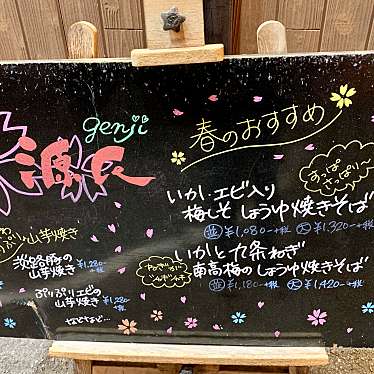 genji
源氏
春のおすすめ
すっぱ
さっぱり〜
いか・エビ入り
梅しそ しょうゆ焼きそば
並¥1,080-+税 大¥1,320-+税
いかと九条ねぎ
南高梅のしょうゆ焼きそば
並¥1,180-+税 大¥1,420-+税
ねぎが
どんどんさ
山芋焼き
淡路豚の
山芋焼き ¥1,280-+税
ぷりぷりエビの
山芋焼き ¥1,280-+税
などなど…